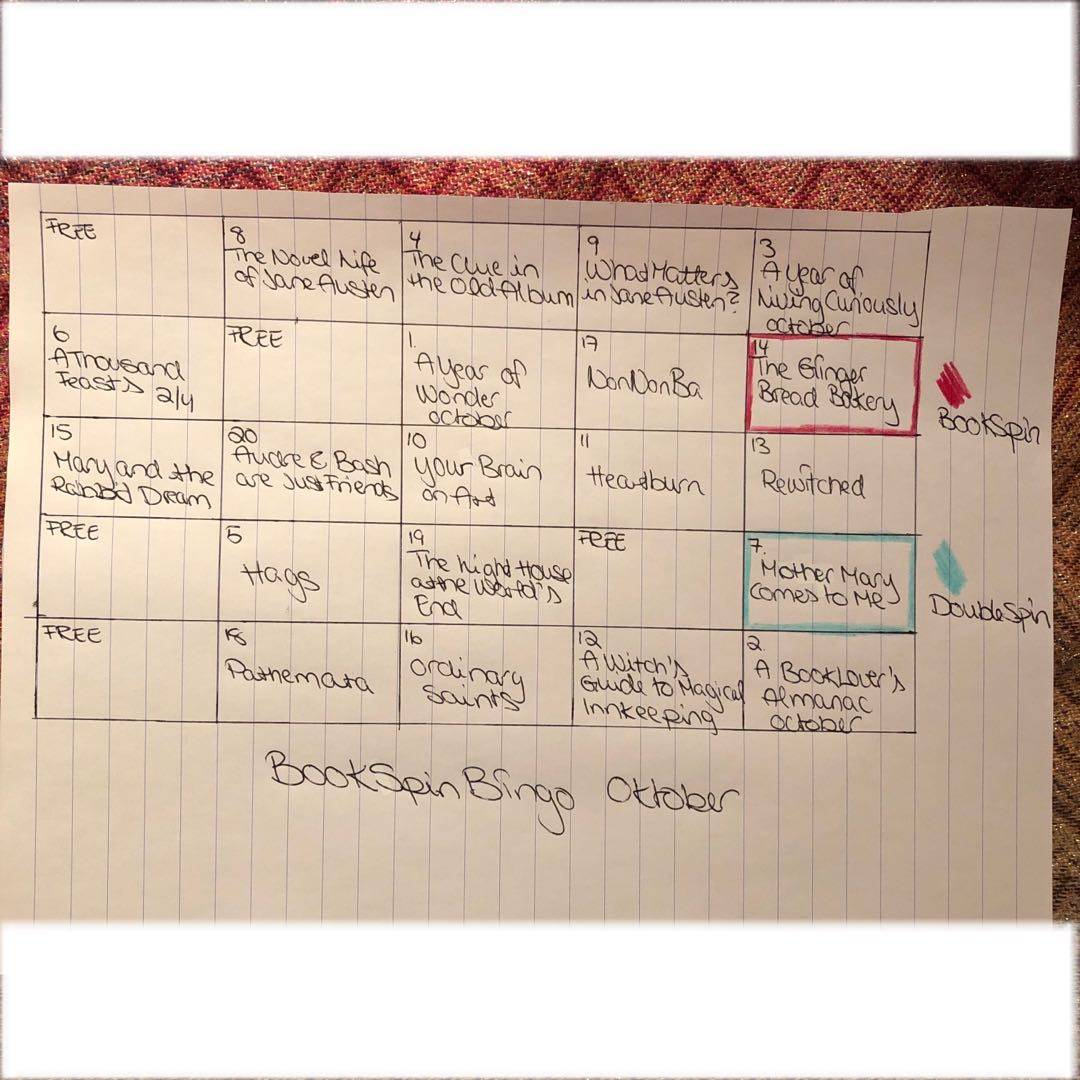 FREE
8
The Novel Life
of Jane Austen
4
The Clue in
the Old Album
9
What Matters
in Jane Austen?
3
A year of
Living Curiously
October
6
A Thousand
Feasts 2/4
FREE
1
A year of
Wonder
October
17
NonNonBa
14
The Ginger
Bread Bakery
BookSpin
15
Mary and the
Rabbit Dream
20
Audre & Bash
are Just Friends
10
Your Brain
on Art
11
Heartburn
13
Rewitched
FREE
5
Hags
19
The Light House
at the World's
End
FREE
7
Mother Mary
comes to Me
DoubleSpin
FREE
18
Pathemata
16
Ordinary
Saints
12
A Witch's
Guide to Magical
Innkeeping
2
A BookLover's
Almanac
October
BookSpinBingo Oktober